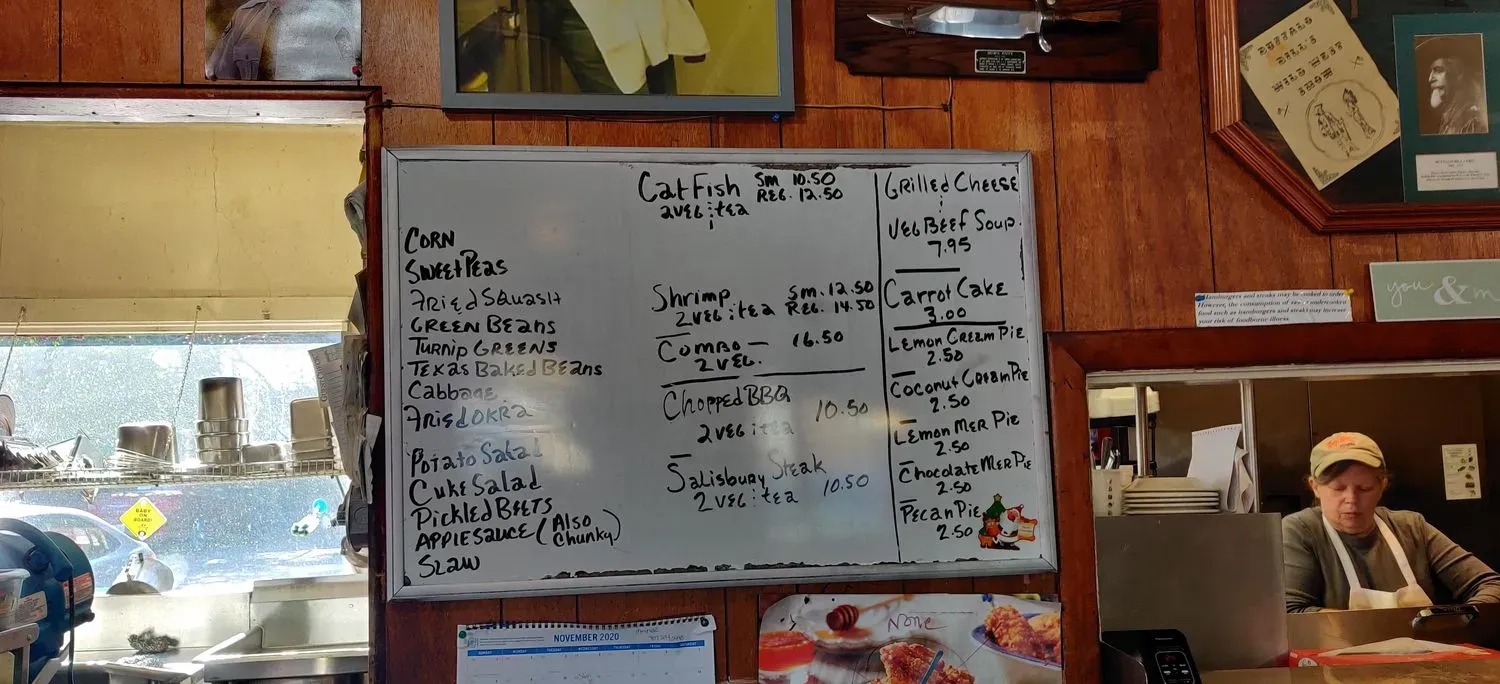 BUFFALO
BILL'S
WILD WEST
SHOW
CORN
SWEET PEAS
FRIED SQUASH
GREEN BEANS
TURNIP GREENS
TEXAS BAKED BEANS
Cabbage
FRIED OKRA
POTATO Salad
Cuke Salad
PICKLED BEETS
APPLESAUCE (Also
Chunky)
SLAW
CatFish SM 10.50
2 VEG : tEa REG. 12.50
Shrimp SM. 12.50
2 VEG : tEa REG. 14.50
COMBO — 16.50
2 VEG.
Chopped BBQ 10.50
2 VEG : tEa
Salisbury Steak
2 VEG : tEa 10.50
GRILLED CHEESE
VEG BEEF SOUP.
7.95
Carrot Cake
3.00
LEMON CREAM PIE
2.50
COCONUT CREAM PIE
2.50
LEMON MER PIE
2.50
ChocolatE MER PIE
2.50
PECAN PIE
2.50
Hamburgers and steaks may be cooked to order
However, the consumption of raw or undercooked
food such as hamburgers and steaks may increase
your risk of foodborne illness.
you & m
BABY
ON
BOARD!
NOVEMBER 2020
SUNDAY MONDAY TUESDAY WEDNESDAY THURSDAY FRIDAY SATURDAY
None